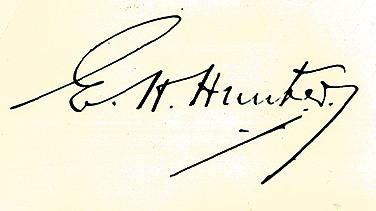 E. H. Hunter.